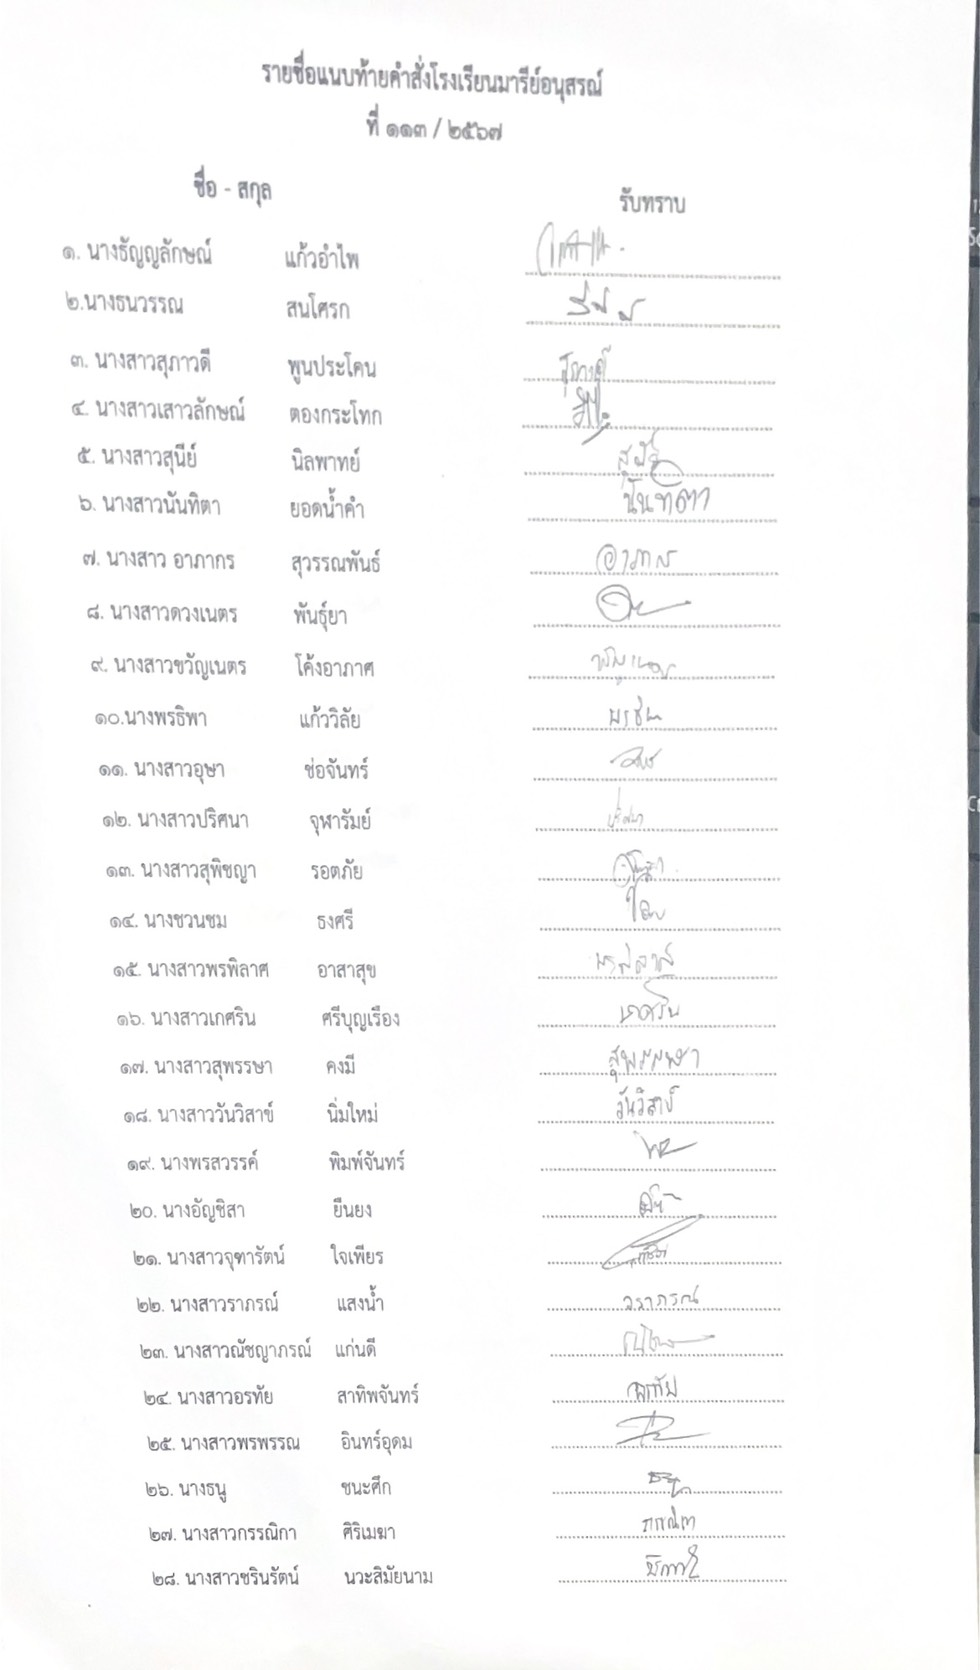 รายชื่อแนบท้ายคำสั่งโรงเรียนมารีย์อนุสรณ์
ที่ ๑๑๓ / ๒๕๖๗
ชื่อ - สกุล รับทราบ
๑. นางธัญญลักษณ์ แก้วอำไพ
๒.นางธนวรรณ สนโศรก
๓. นางสาวสุภาวดี พูนประโคน สุภาวดี
๔. นางสาวเสาวลักษณ์ ตองกระโทก
๕. นางสาวสุนีย์ นิลพาทย์
๖. นางสาวนันทิตา ยอดน้ำคำ นันทิตา
๗. นางสาว อาภากร สุวรรณพันธ์ อาภากร
๘. นางสาวดวงเนตร พันธุ์ยา
๙. นางสาวขวัญเนตร โค้งอาภาศ
๑๐.นางพรธิพา แก้ววิลัย
๑๑. นางสาวอุษา ช่อจันทร์
๑๒. นางสาวปริศนา จุฬารัมย์ ปริศนา
๑๓. นางสาวสุพิชญา รอตภัย
๑๔. นางชวนชม ธงศรี
๑๕. นางสาวพรพิลาศ อาสาสุข พรพิลาศ
๑๖. นางสาวเกศริน ศรีบุญเรือง เกศริน
๑๗. นางสาวสุพรรษา คงมี สุพรรษา
๑๘. นางสาววันวิสาข์ นิ่มใหม่ วันวิสาข์
๑๙. นางพรสวรรค์ พิมพ์จันทร์
๒๐. นางอัญชิสา ยืนยง
๒๑. นางสาวจุฑารัตน์ ใจเพียร
๒๒. นางสาวราภรณ์ แสงน้ำ วราภรณ์
๒๓. นางสาวณัชญาภรณ์ แก่นดี
๒๔. นางสาวอรทัย สาทิพจันทร์ อรทัย
๒๕. นางสาวพรพรรณ อินทร์อุดม
๒๖. นางธนู ชนะศึก
๒๗. นางสาวกรรณิกา ศิริเมฆา
๒๘. นางสาวชรินรัตน์ นวะสิมัยนาม